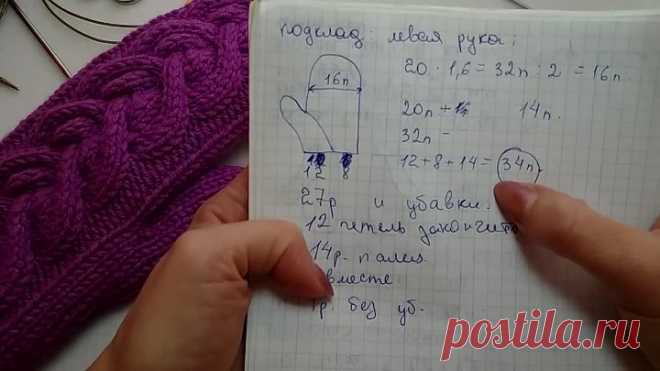 подклад: левая рука:
16п
20 · 1,6 = 32п : 2 = 16п.
20п + 14 14п.
32п -
12 + 8 + 14 = 34п.
12 8
27р и убавки.
12 петель закончить
14р. палец
вместе
р. без уб.
postila.ru